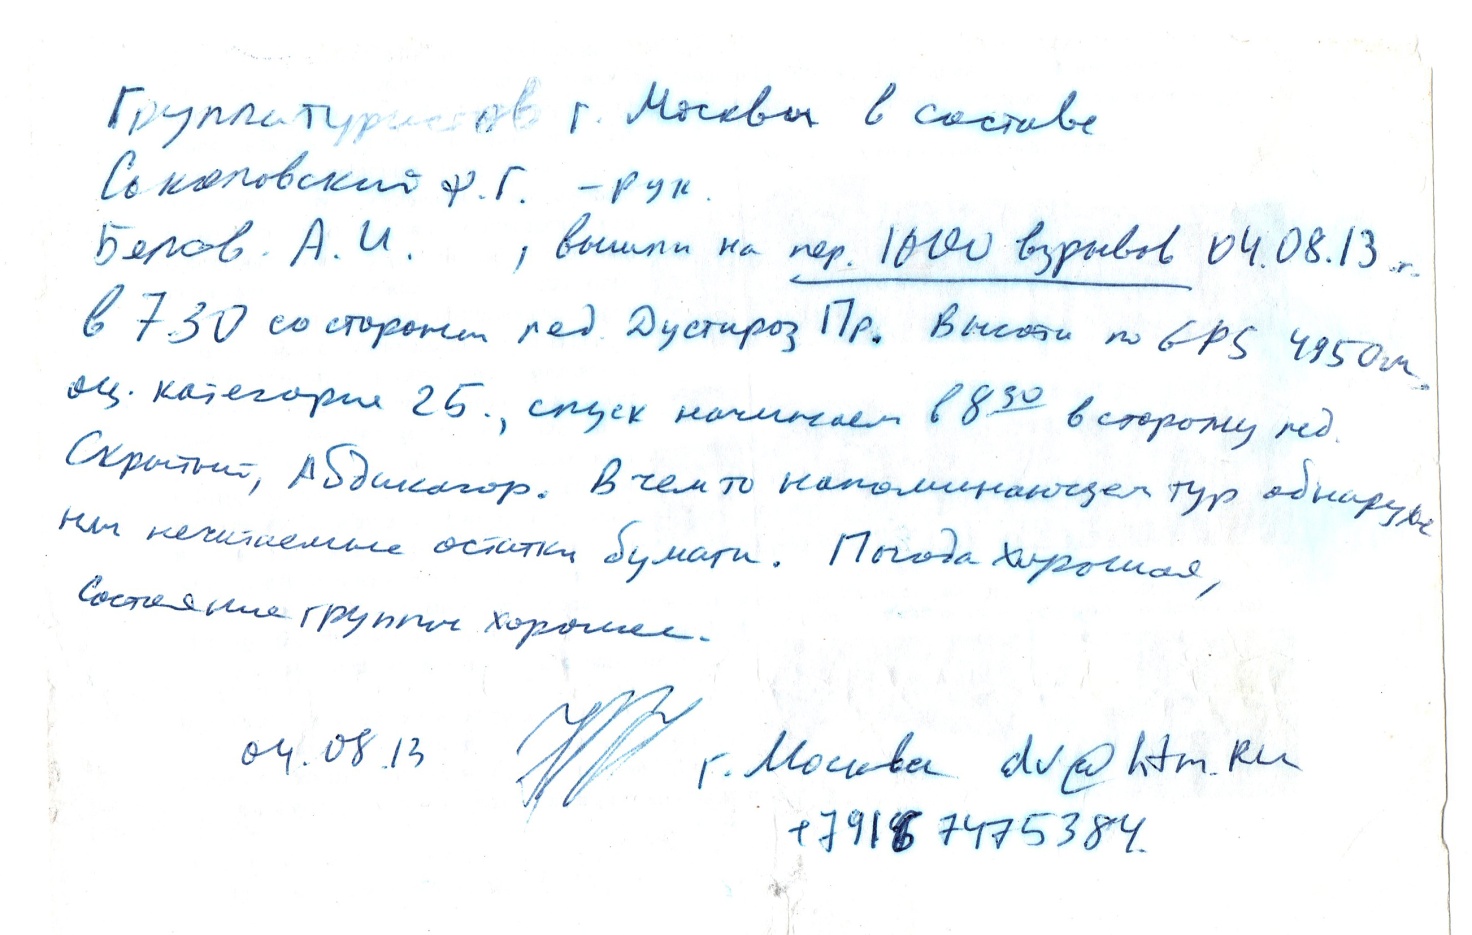 Группа туристов г. Москвы в составе
Соколовский Ф.Г. – рук.
Белов. А. И. , вышли на пер. 1000 взрывов 04.08.13 г.
в 7.30 со стороны лед. Дустироз Пр. Высота по GPS 4950м.
оц. категория 2Б., спуск начинаем в 8 30 в сторону лед.
Скрытый, Абдукагор. В чем то напоминающем тур обнаруже
ны нечитаемые остатки бумаги. Погода хорошая,
Состояние группы хорошее.
04.08.13 г. Москва dv@htm.ru
+7916 7475384.